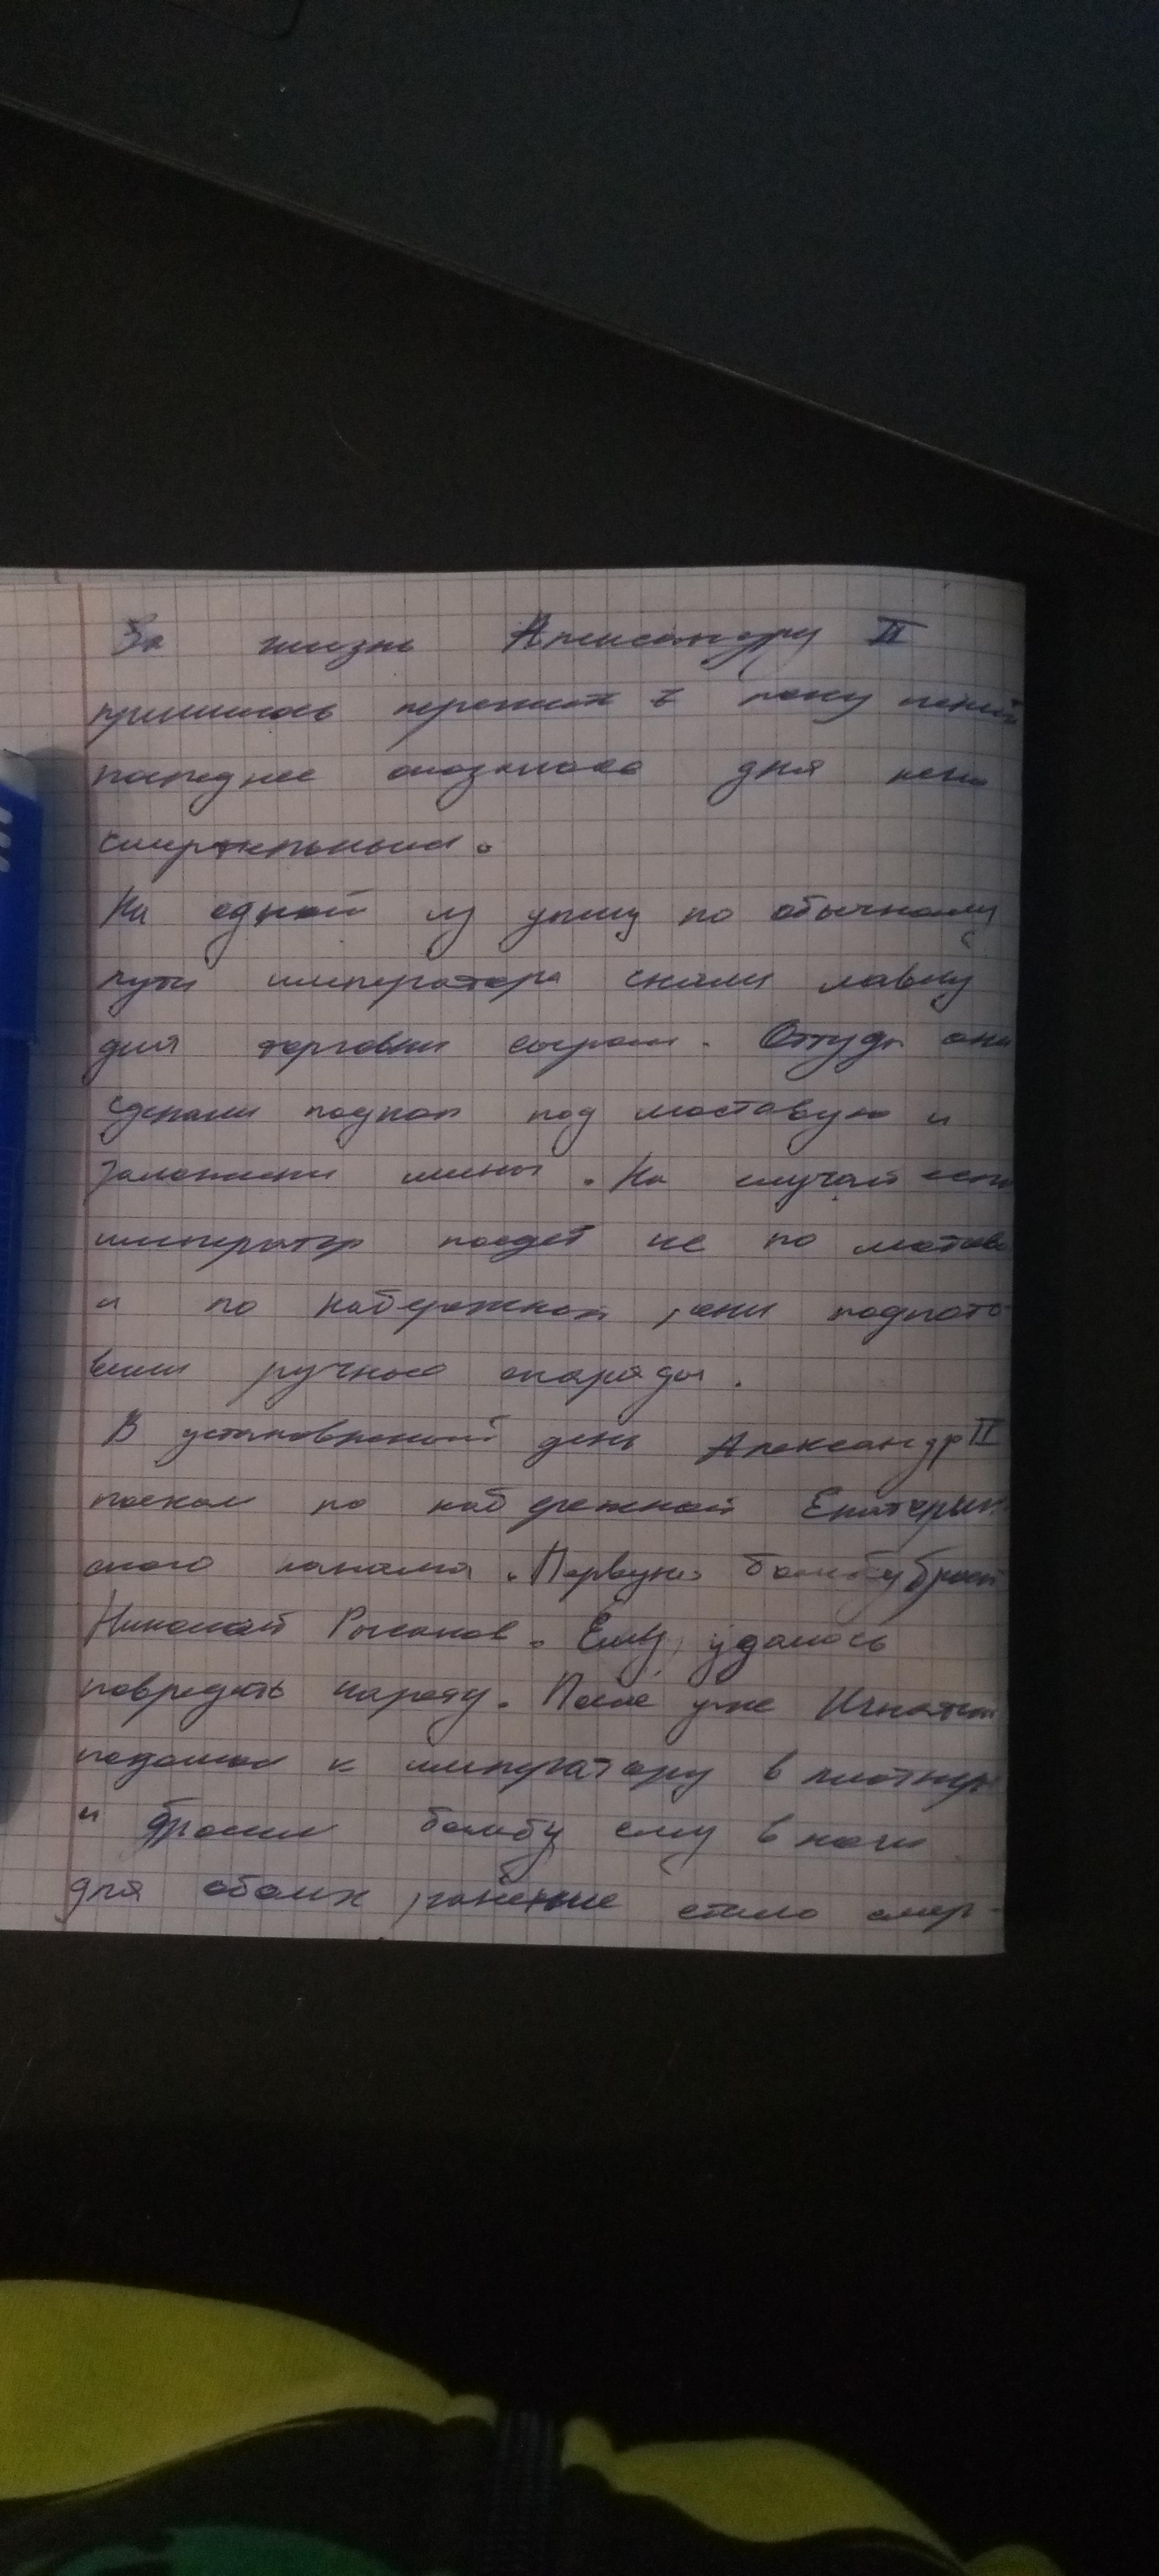 За жизнь Александру II
пришлось пережить 7 покушений
последнее оказалось для него
смертельным.
На одной из улиц по обычному
пути императора сняли лавку
для торговли сыром. Оттуда они
сделали подкоп под мостовую и
заложили мины. На случай если
император поедет не по мостов
а по набережной, они подгото
вили ручные снаряды.
В установленный день Александр II
поехал по набережной Екатерин
ского канала. Первую бомбу бросил
Николай Рысаков. Ему удалось
повредить карету. После уже Игнатий
подошёл к императору в плотную
и бросил бомбу ему в ноги
для обоих ранение стало смер-